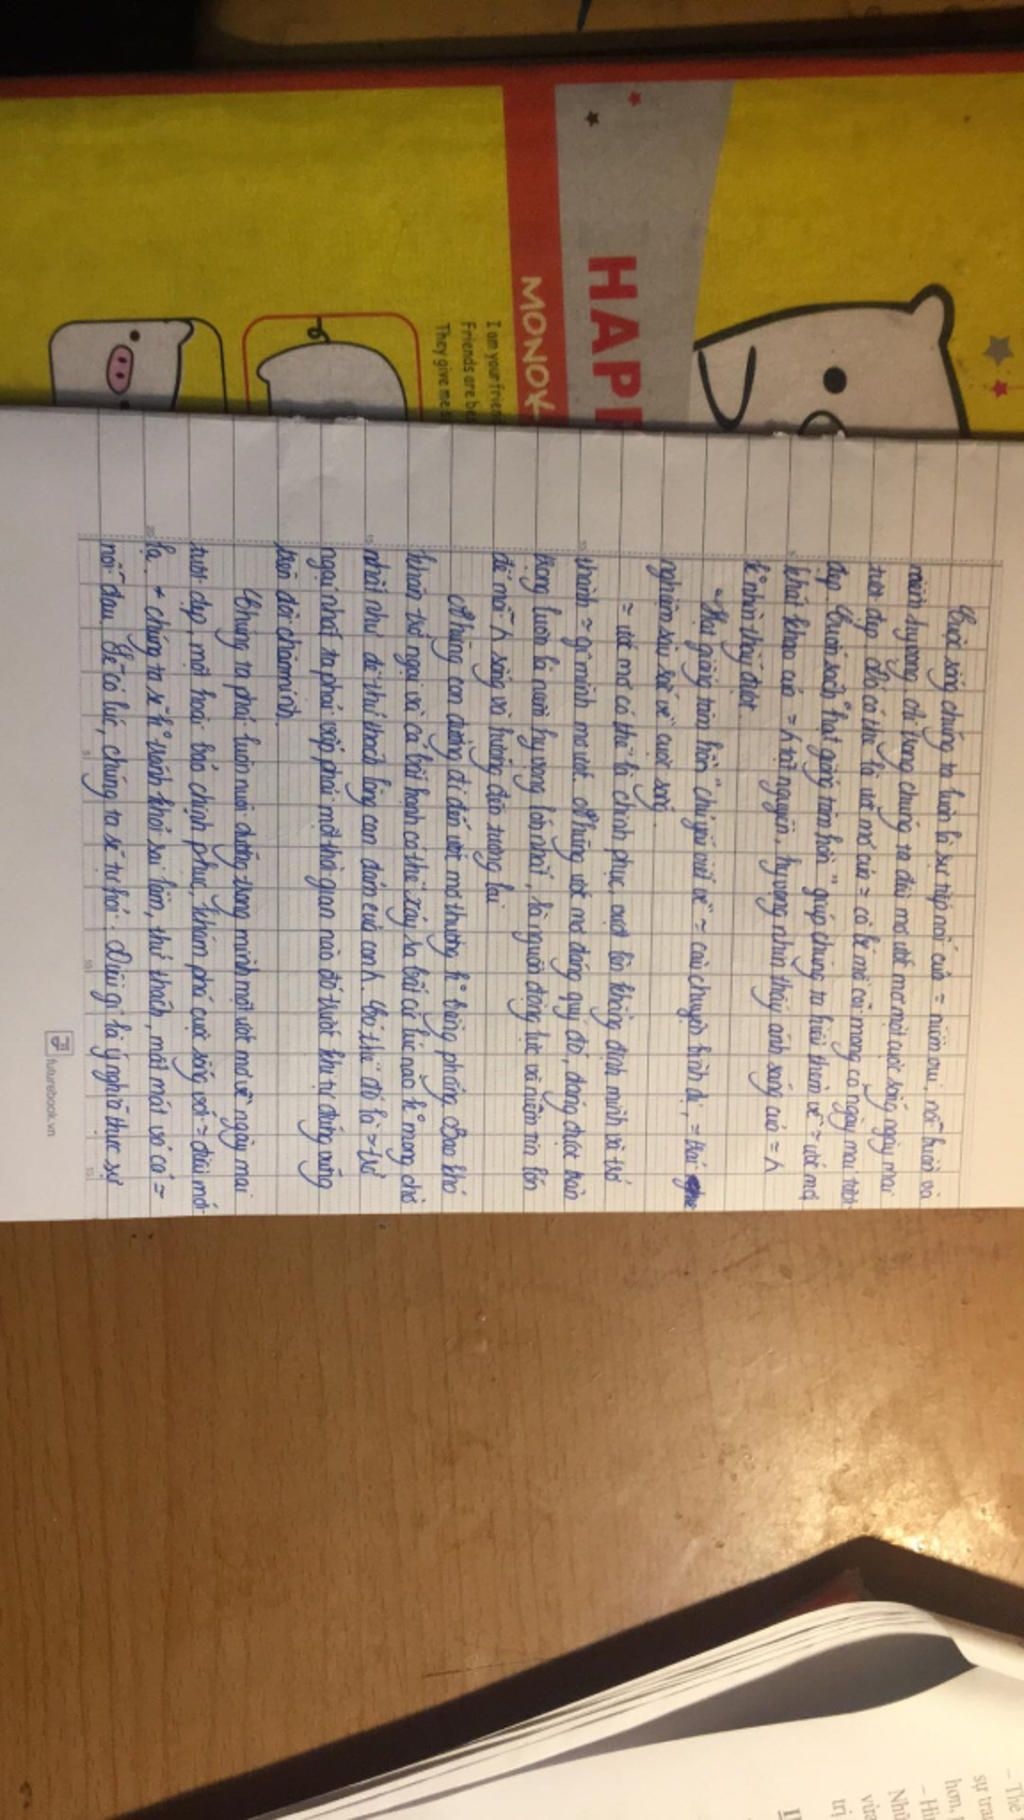 HAPP
MONOK
I am your frien
Friends are be
They give me s
Cuộc sống chúng ta luôn là sự tiếp nối của = niềm vui, nỗi buồn và
niềm hy vọng, chỉ vọng chúng ta đều mơ ước mơ một cuộc sống ngày mai
tươi đẹp. Đó có thể là ước mơ của = cô bé mồ côi mong có ngày mai tươi
đẹp. Cuốn sách "hạt giống tâm hồn" giúp chúng ta hiểu thêm về = ước mơ,
khát khao của = h tật nguyền, hy vọng nhìn thấy ánh sáng của = h
k° nhìn thấy được.
"Hạt giống tâm hồn" chuyên viết về = câu chuyện bình dị, = trải
nghiệm sâu sắc về cuộc sống.
= ước mơ có thể là chinh phục, vượt lên khẳng định mình và trở
thành = gì mình mơ ước. Những ước mơ đáng quý đó, đang được
trong luôn là niềm hy vọng lớn nhất, là nguồn động lực và niềm tin lớn
để mỗi h sống và hướng đến tương lai.
Những con đường đi đến ước mơ thường k° bằng phẳng. Bao khó
khăn trở ngại và cả bất hạnh có thể xảy ra bất cứ lúc nào k° mong chờ
nhất như để thử thách lòng can đảm của con h. Bởi thế đó là = trở
ngại nhất ta phải vấp phải một thời gian nào đó trước khi tự đứng vững
trên đôi chân mình.
Chúng ta phải luôn nuôi dưỡng trong mình một ước mơ về ngày mai
tươi đẹp, một hoài bão chinh phục, khám phá cuộc sống với = điều mới
lạ. chúng ta sẽ k° tránh khỏi sai lầm, thử thách, mất mát và có =
nỗi đau. Để có lúc, chúng ta sẽ tự hỏi: Điều gì là ý nghĩa thực sự
futurebook.vn
– Thể
sự trư
hơn.
– Hì
Nhữ
vừa
trị